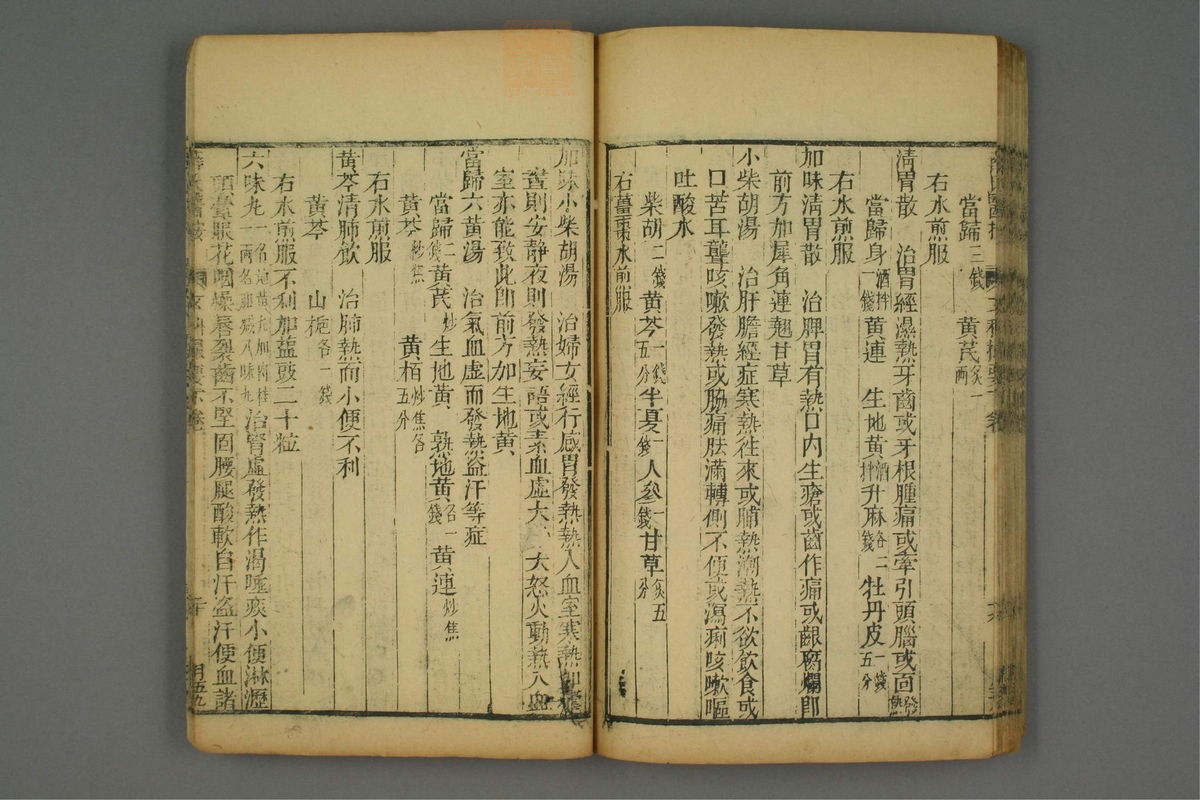 當歸二錢 黃芪炙一兩
右水煎服
清胃散 治胃經濕熱牙齒或牙根腫痛或牽引頭腦或面發熱
當歸身酒拌一錢黃連 生地黃酒拌升麻各二錢牡丹皮一錢五分
右水煎服
加味清胃散 治脾胃有熱口內生瘡或齒作痛或齦腐爛即
前方加犀角連翹甘草
小柴胡湯 治肝膽經症寒熱徃來或脯熱潮熱不欲飲食或
口苦耳聾咳嗽發熱或脇痛胠滿轉側不便或瀉痢咳嗽嘔
吐酸水
柴胡二錢黃芩一錢五分半夏一錢人參一錢甘草炙五分
右薑棗水煎服
加味小柴胡湯 治婦女經行感冒發熱熱入血室寒熱如瘧
晝則安靜夜則發熱妄語或素血虛大 大怒火動熱入血
室亦能致此即前方加生地黃
當歸六黃湯 治氣血虛而發熱盜汗等症
當歸二錢黃芪炒生地黃 熟地黃各一錢黃連炒焦
黃芩炒焦 黃栢炒焦各五分
右水煎服
黃芩清肺飲 治肺熱而小便不利
黃芩 山梔各一錢
右水煎服不利加鹽豉二十粒
六味丸一名地黃丸加肉桂一兩名 八味丸治腎虛發熱作渴唾痰小便淋瀝
頭暈眼花咽燥唇裂齒不堅固腰腿酸軟自汗盜汗便血諸